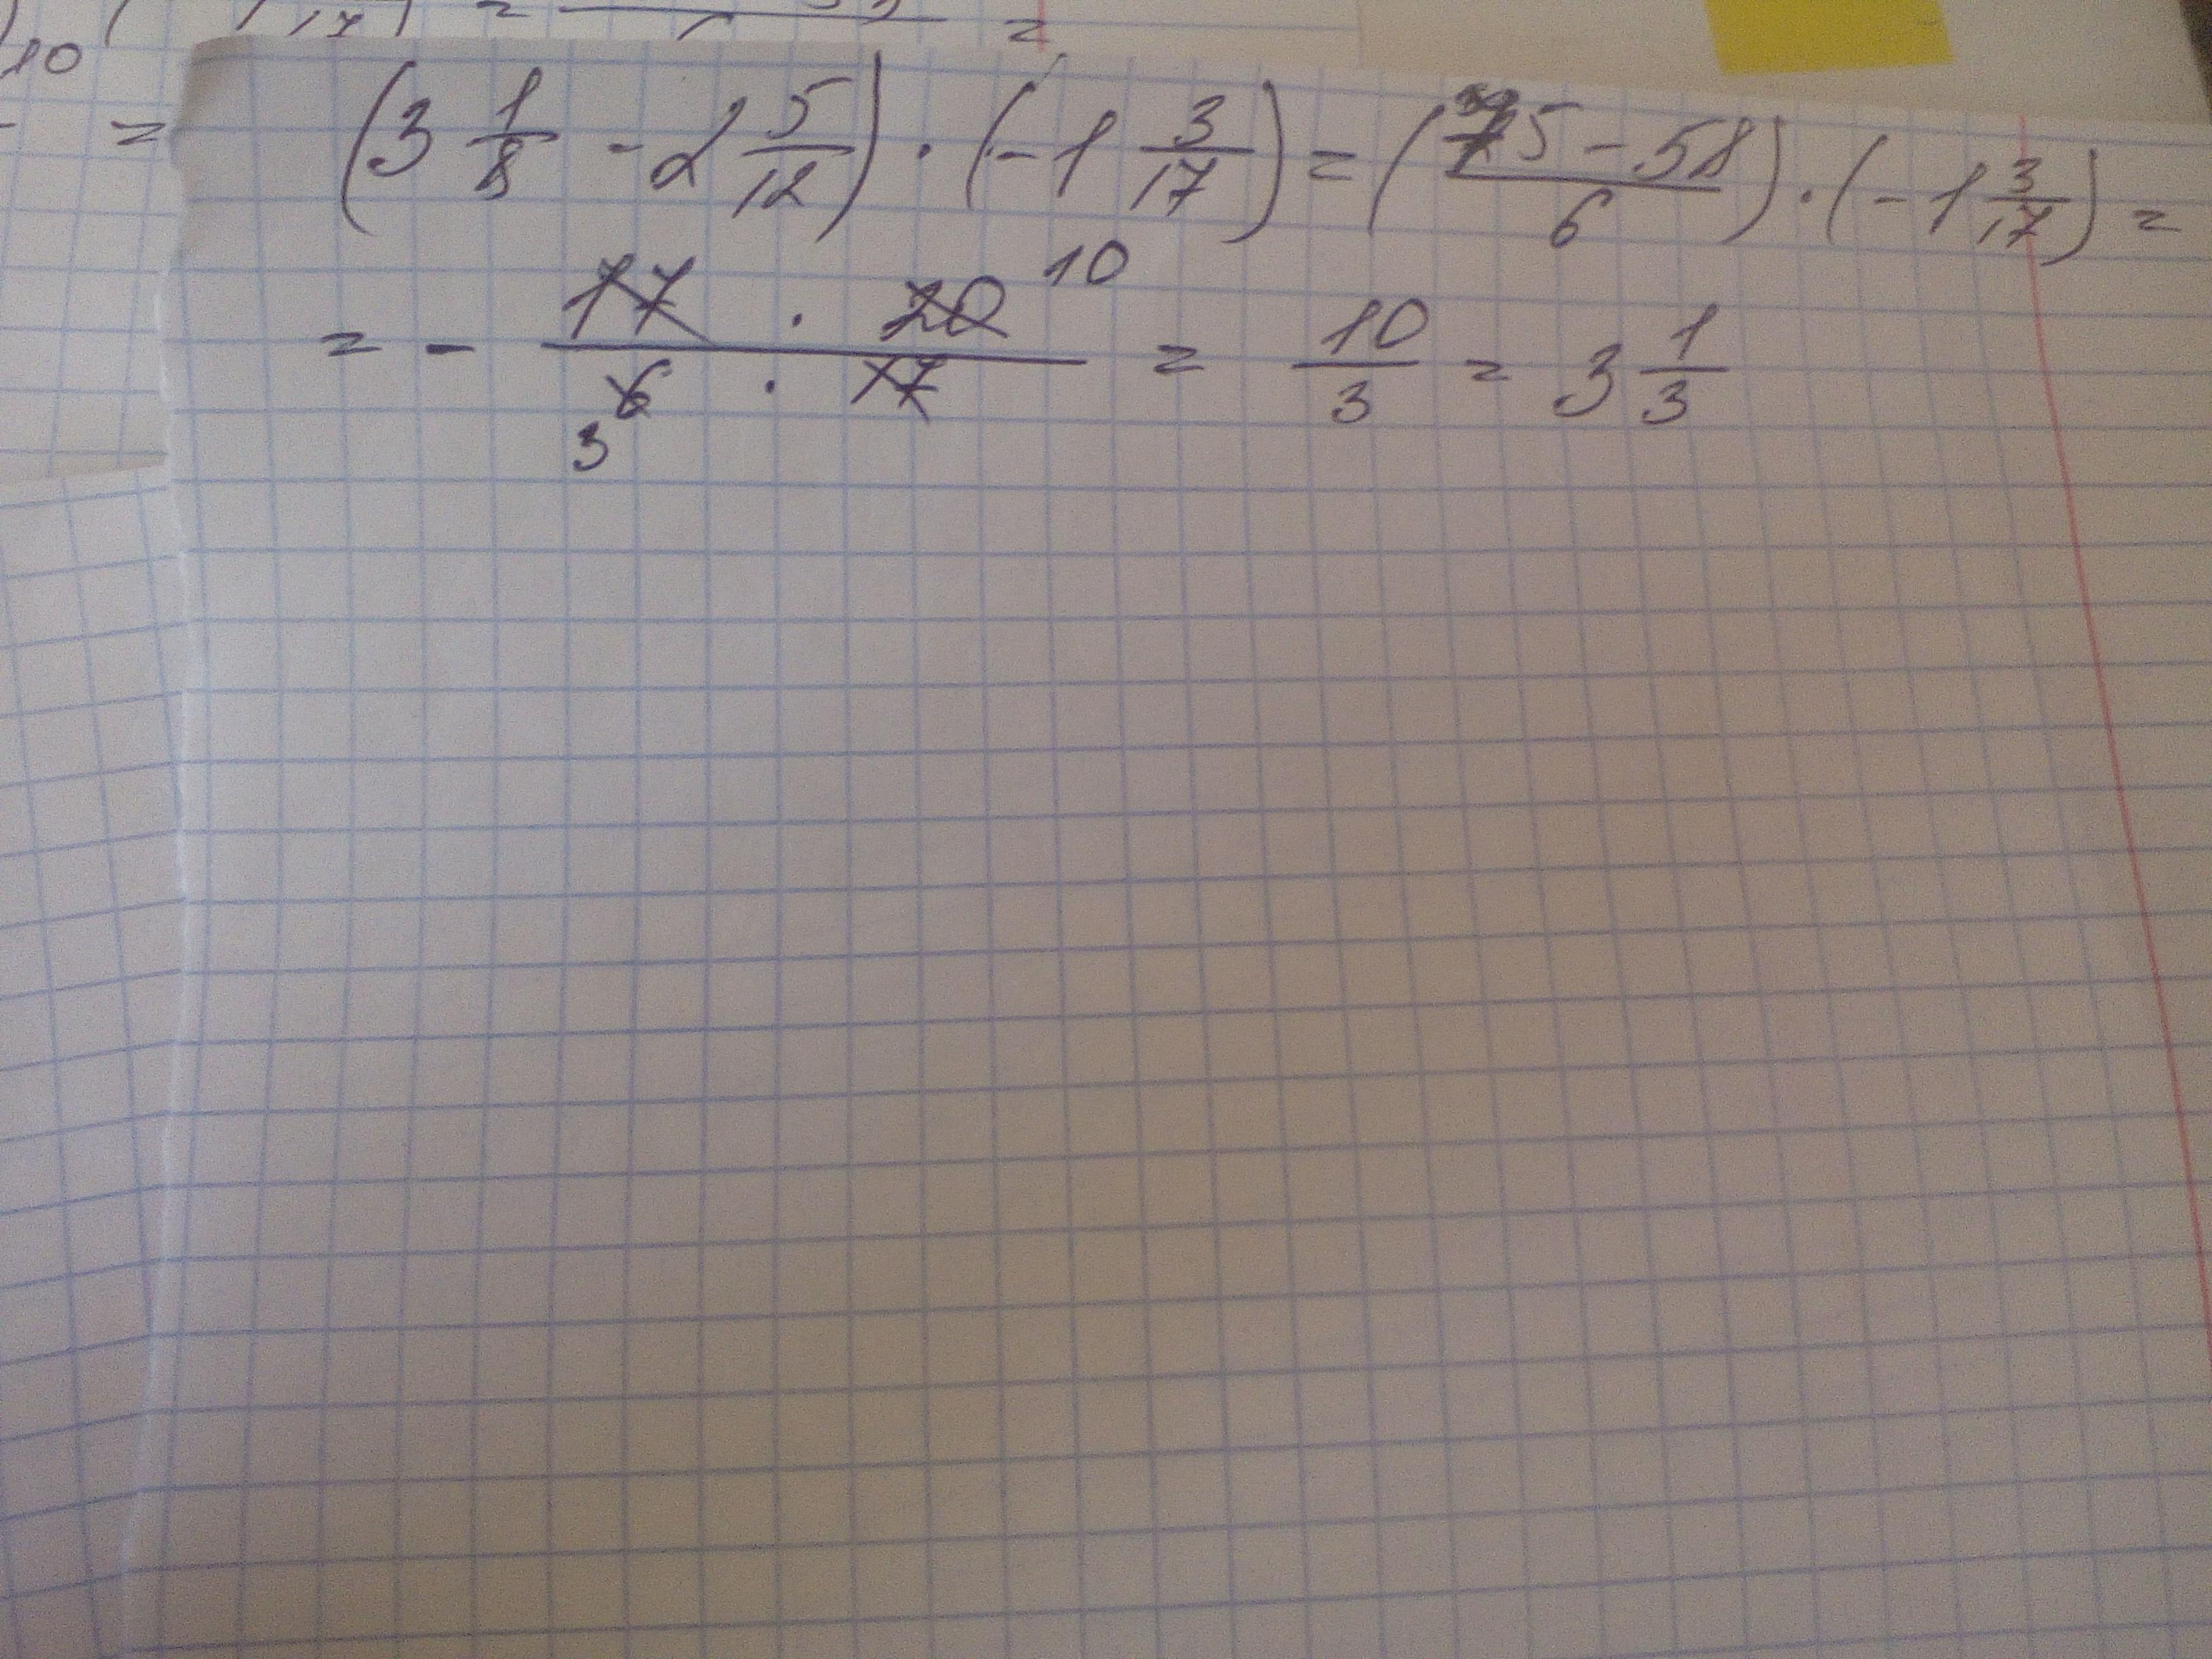 10
=
(3 1/8 - 2 5/12) · (-1 3/17) = (75 - 58 / 6) · (-1 3/17) =
= - 17 · 20 10 / 3 6 · 17 = 10/3 = 3 1/3